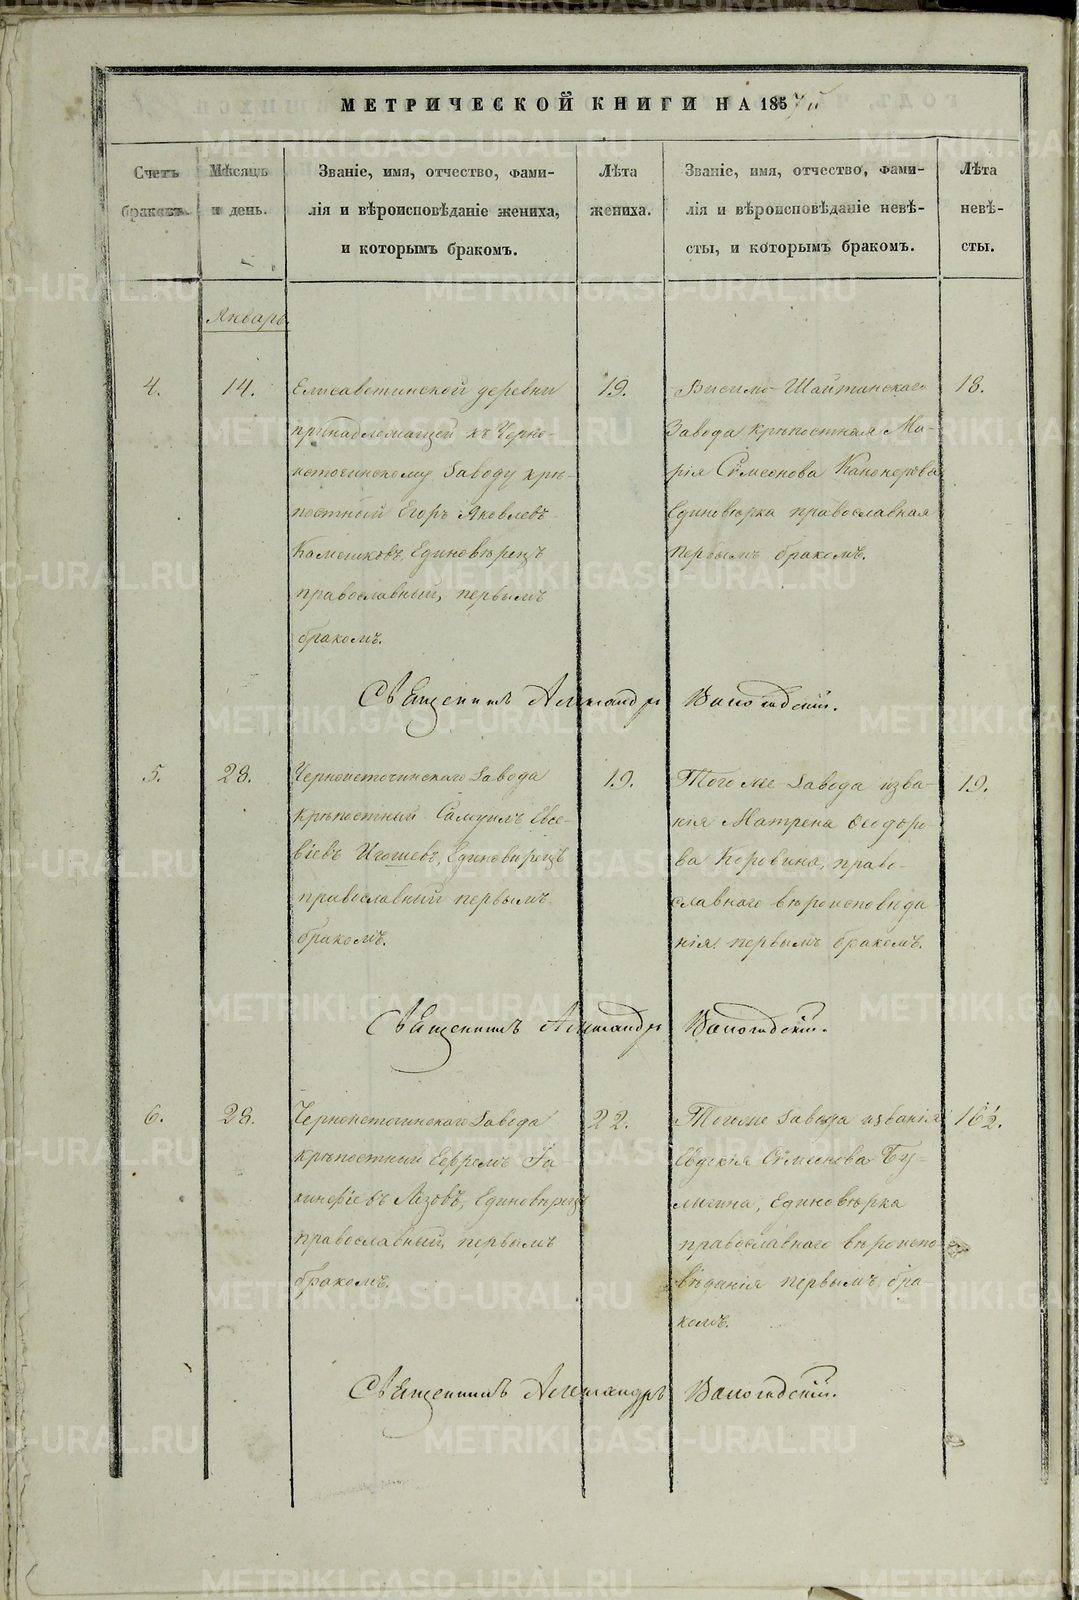 МЕТРИЧЕСКОЙ КНИГИ НА 1857й
Счетъ браковъ.
Мѣсяцъ и день.
Званіе, имя, отчество, фами-
лія и вѣроисповѣданіе жениха,
и которымъ бракомъ.
Лѣта
жениха.
Званіе, имя, отчество, фами-
лія и вѣроисповѣданіе невѣ-
сты, и которымъ бракомъ.
Лѣта
невѣ-
сты.
Январь
4.
14.
Елисаветинской деревни
принадлежащей къ Черно-
источинскому заводу крѣ-
постный Егоръ Яковлевъ
Камешковъ, Единовѣрецъ
православный, первымъ
бракомъ.
19.
Висимо-Шайтанскаго
Завода крѣпостная Ма-
рія Сѵмеонова Канонерова
Единовѣрка православная
первымъ бракомъ.
18.
Священникъ Александръ Вологодскій.
5.
28.
Черноисточинскаго Завода
крѣпостный Самуилъ Евсе-
віевъ Игошевъ, Единовѣрецъ
православный первымъ
бракомъ.
19.
Того же Завода
Матрена Ѳеодоро-
ва Коровина, право-
славнаго вѣроисповѣда-
нія первымъ бракомъ.
19.
Священникъ Александръ Вологодскій.
6.
28.
Черноисточинскаго Завода
крѣпостный Ефремъ Іа-
кинфіевъ Лязовъ, Единовѣрецъ
православный, первымъ
бракомъ.
22.
Тогоже Завода
Евдокія Сѵмеонова Бу-
лыгина, Единовѣрка
православнаго вѣроиспо-
вѣданія первымъ бра-
комъ.
16 ½.
Священникъ Александръ Вологодскій.
METRIKI.GASO-URAL.RU